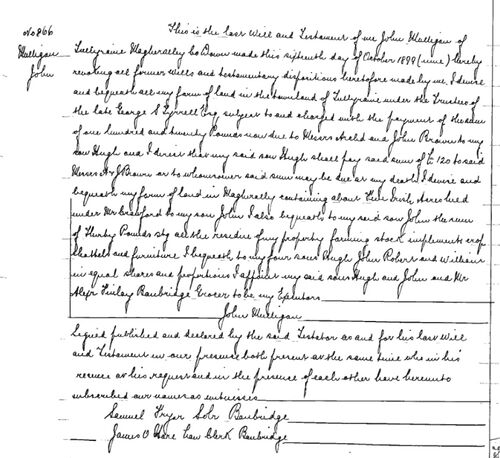 No 866
Mulligan
John
This is the last Will and Testament of me John Mulligan of
Tullyraine Magheralley Co Down made this sixteenth day of October 1899 (nine) hereby
revoking all former wills and testamentary dispositions heretofore made by me. I devise
and bequeath all my farm of land in the townland of Tullyraine under the Trustees of
the late George S Tyrrell Esq subject to and charged with the payment of the sum
of one hundred and twenty Pounds now due to Messrs and John Brown to my
son Hugh and I devise that my said son Hugh shall pay said sum of £120 to said
Messrs A & J Brown or to whomsoever said sum may be due at my death I devise and
bequeath my farm of land in Magherally containing about Irish Acres held
under Mr Crawford to my son John I also bequeath to my said son John the sum
of Thirty Pounds stg all the residue of my property farming stock implements crop
Chattels and furniture I bequeath to my four sons Hugh John Robert and William
in equal shares and proportions I appoint my said sons Hugh and John and Mr
Alexr Finlay Banbridge Grocer to be my Executors
John Mulligan
Signed published and declared by the said Testator as and for his last Will
and Testament in our presence both present at the same time who in his
presence at his request and in the presence of each other have hereunto
subscribed our names as witnesses
Samuel Fryer Solr Banbridge
James O Hare Law Clerk Banbridge